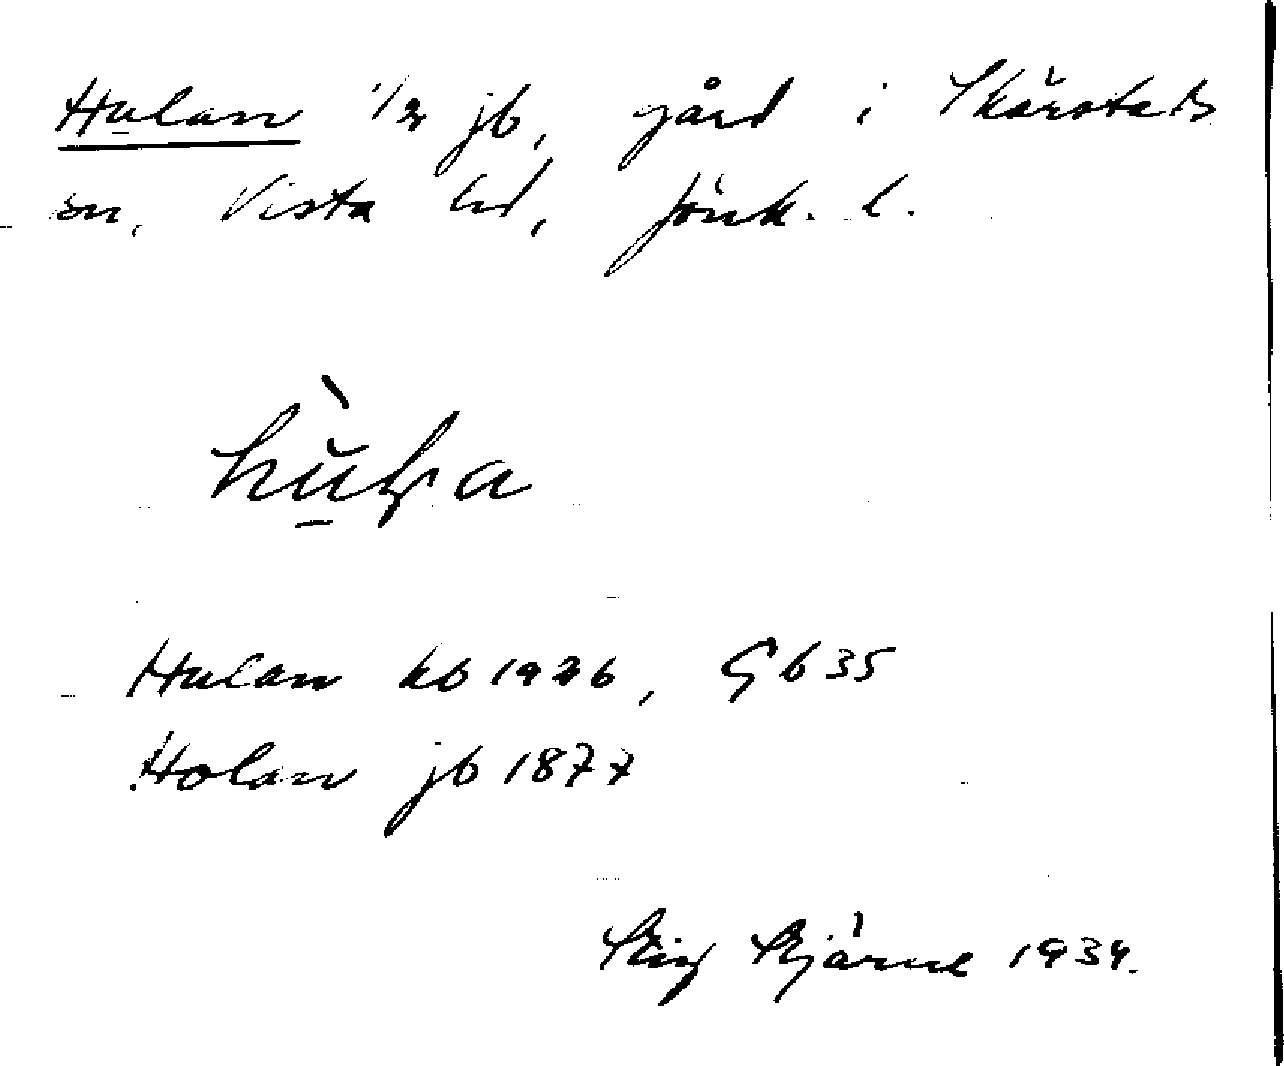 Hulan 1/2 jb, gård i Skärstads
sn, Vista hd, Jönk. l.
Hulan kb 1926, Gb 35
Holan jb 1877
Stig Stjärne 1934.